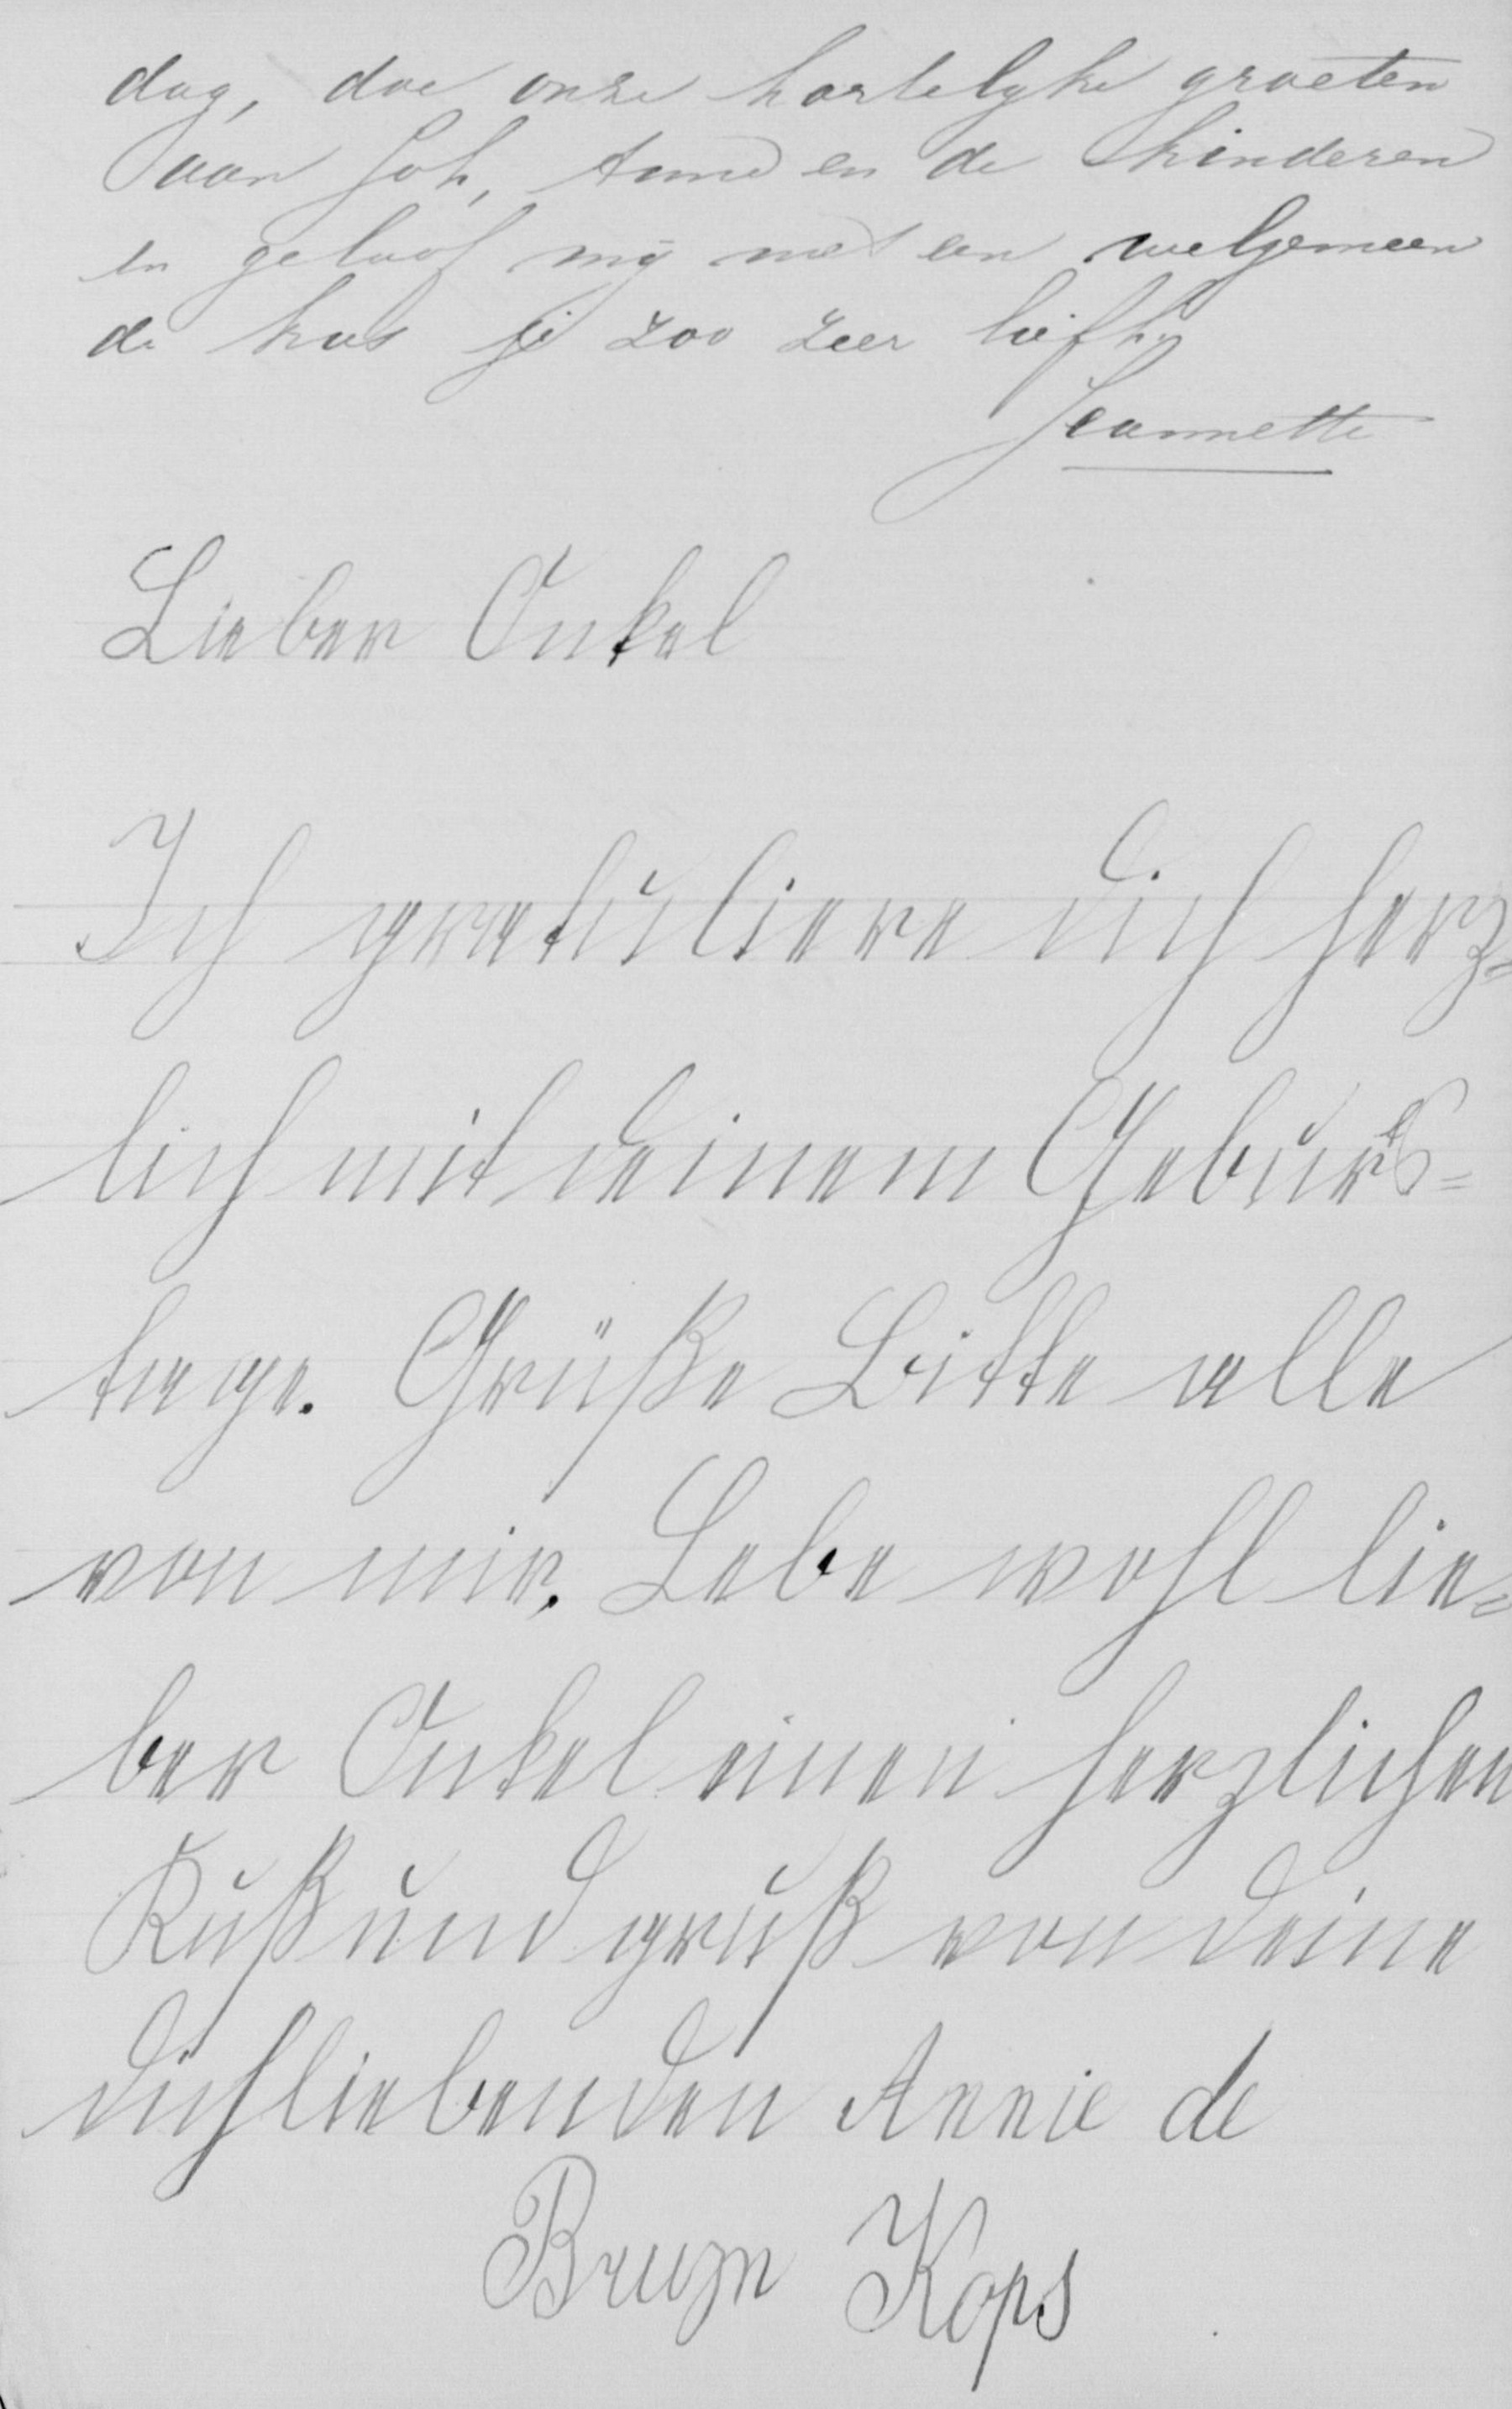 dag, doe onze hartelyke groeten
aan Joh, Anna en de kinderen
en geloof mij met een welgemeen
de kus je zoo zeer liefh.
Jeannette
Lieber Onkel
Ich gratuliere dich herz=
lich mit deinem Geburts=
tage. Grüße Bitte alle
von mir. Lebe wohl lie=
ber Onkel einen herzlichen
Kuß und gruß von deine
dichliebenden Annie de
Bruyn Kops